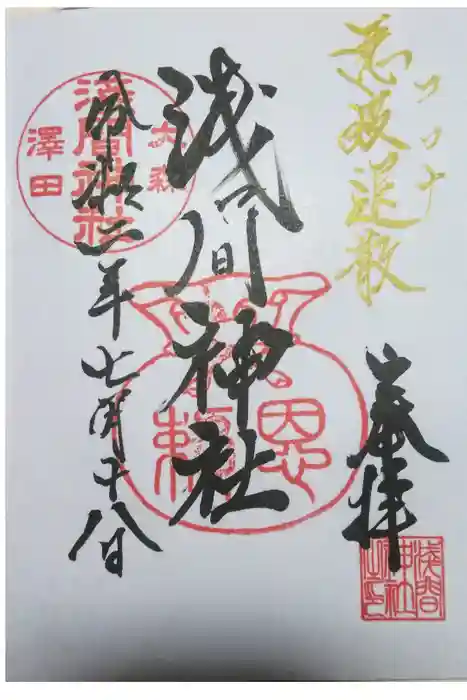 悪疫退散
コロナ
奉拝
浅間神社
令和二年七月十八日
大森
浅間神社
澤田
恩
頼
浅間
神社
之印